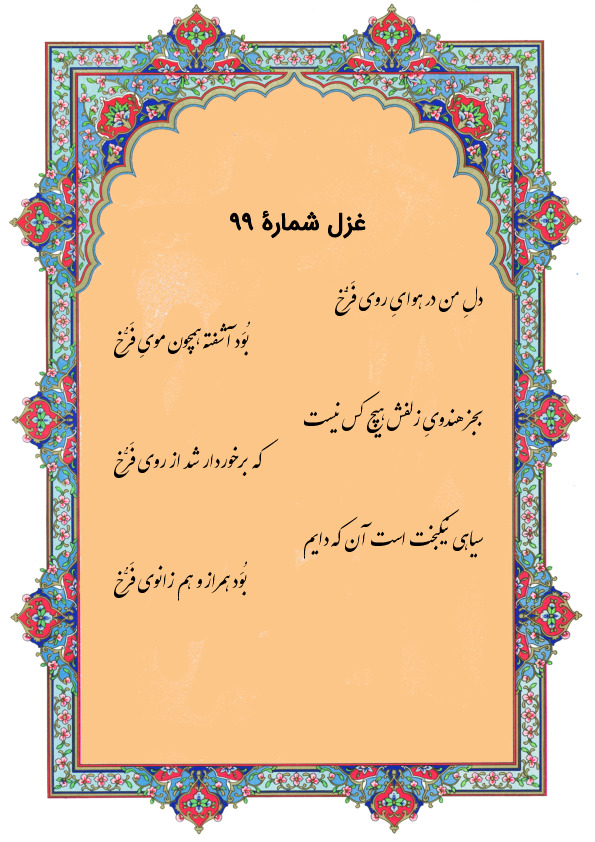 غزل شمارهٔ ۹۹
دلِ من در هوایِ روی فَرُّخ
بُوَد آشفته همچون مویِ فَرُّخ
بجز هندویِ زلفش هیچ کس نیست
که برخوردار شد از روی فَرُّخ
سیاهی نیکبخت است آن که دایم
بُوَد همراز و هم زانوی فَرُّخ